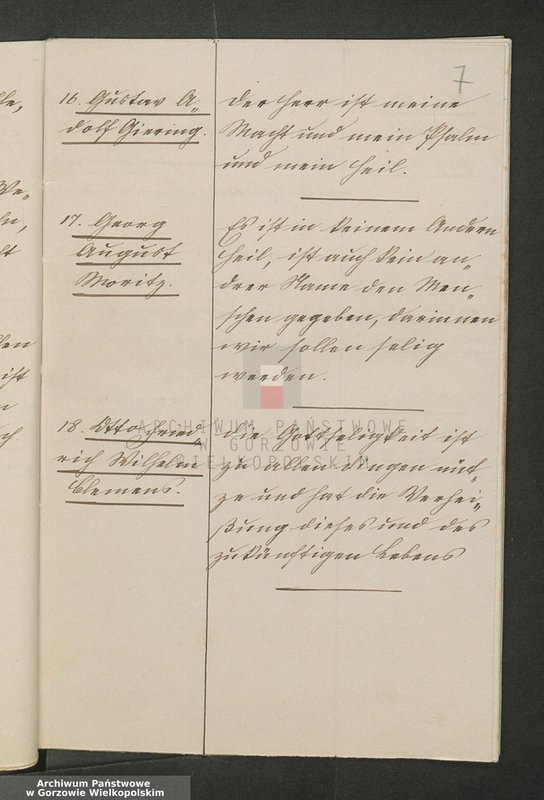 7
16. Gustav A„
dolf Giering.
Der Herr ist meine
Macht und mein Psalm
und mein Heil.
17. Georg
August
Moritz.
Es ist in keinem Andern
Heil, ist auch kein an„
drer Name den Men„
schen gegeben, darinnen
wir sollen selig
werden.
18. Otto Fried„
rich Wilhelm
Clemens.
Die Gottseligkeit ist
zu allen Dingen nüt„
ze und hat die Verhei„
ßung dieses und des
zukünftigen Lebens
ARCHIWUM PAŃSTWOWE
W GORZOWIE
WIELKOPOLSKIM
Archiwum Państwowe
w Gorzowie Wielkopolskim